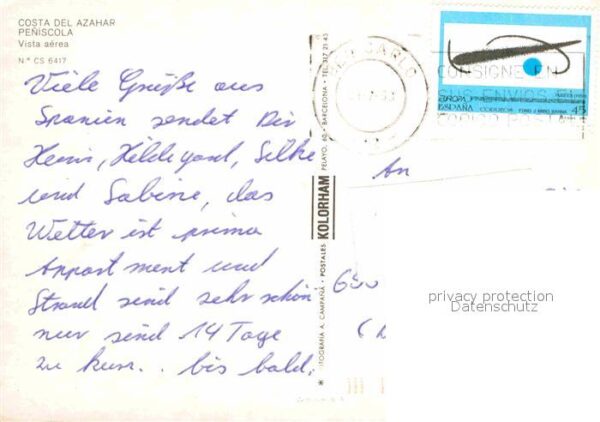 COSTA DEL AZAHAR
PEÑISCOLA
Vista aérea
N.º CS 6417
Viele Grüße aus
Spanien sendet Dir
Heini, Hildegard, Silke
und Sabine, das
Wetter ist prima
Appartment und
Strand sind sehr schön
nur sind 14 Tage
zu kurz.. bis bald,
FOTOGRAFIA A. CAMPAÑÁ - POSTALES KOLORHAM PELAYO, 60 - BARCELONA - TEL. 317 21 43
CARLO
CONSIGNE EN
SUS ENVIOS EL
EUROPA
ESPAÑA CORREOS 45
An
privacy protection
Datenschutz